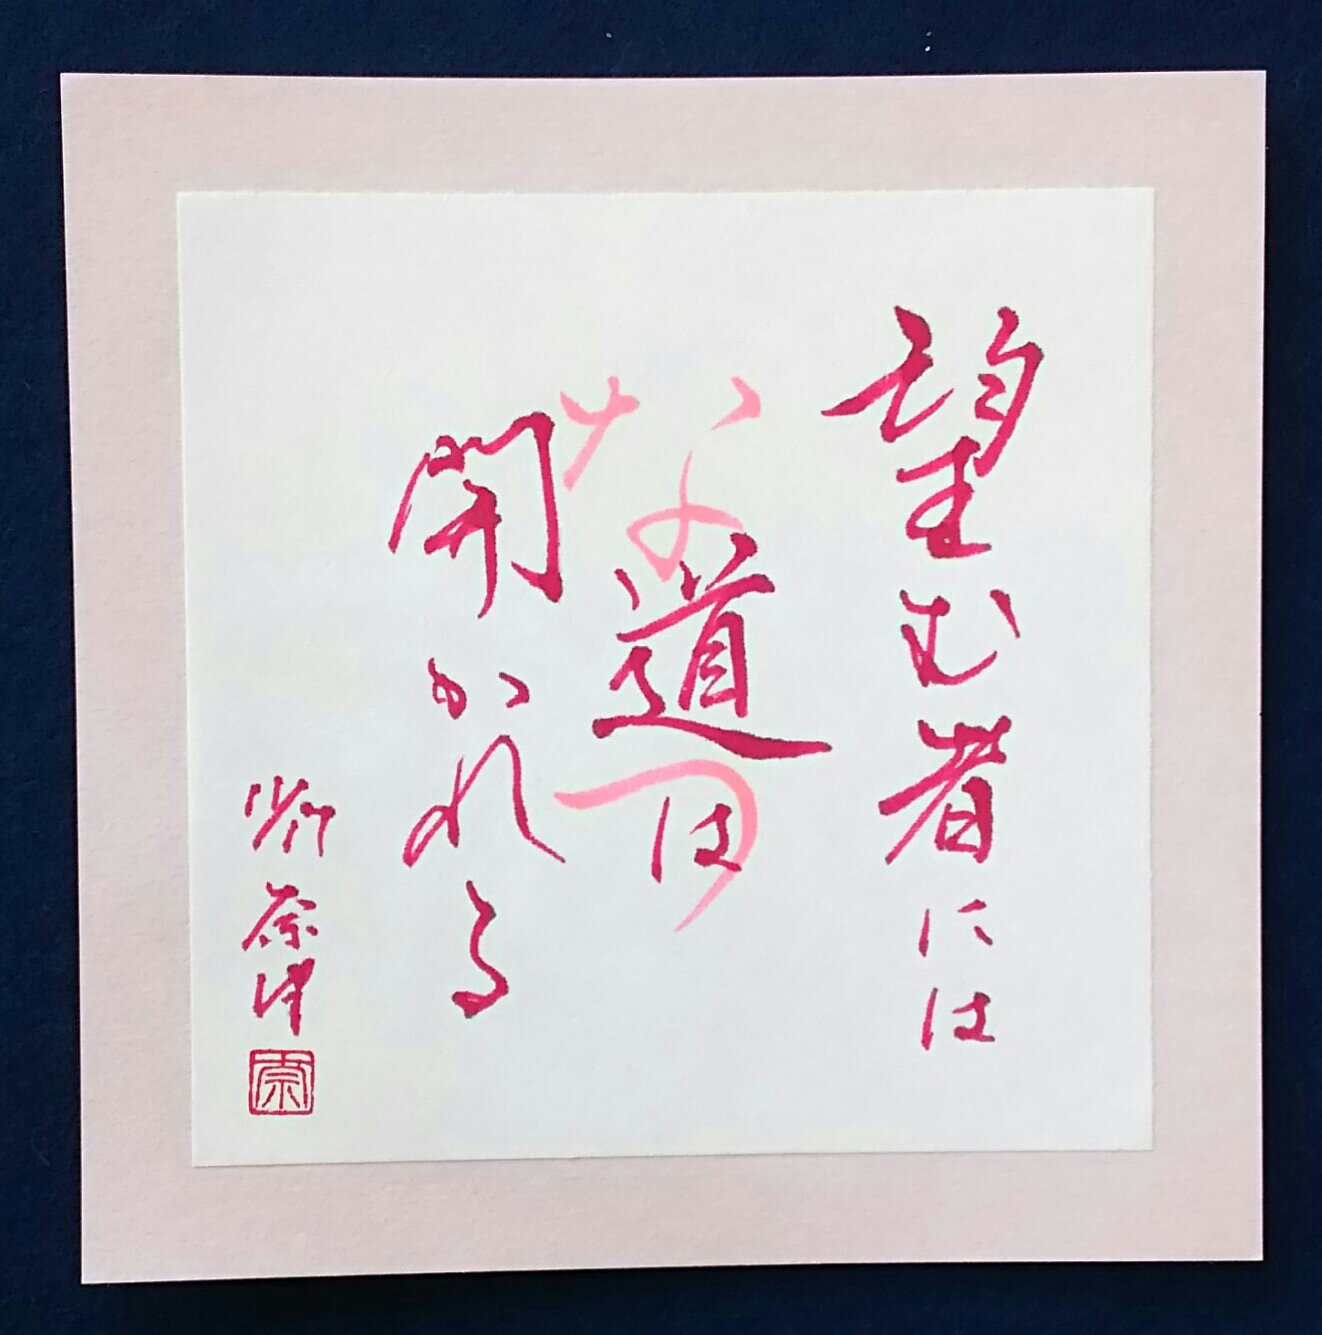 望む者には
道は
開かれる
なつ
奈津
奈